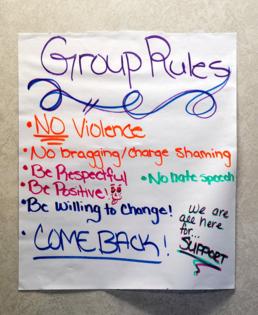 Group Rules
• NO Violence
• No bragging/charge shaming
• Be Respectful
• No hate speech
• Be Positive!
• Be Willing to Change!
• COME BACK!
We are
all here
for...
SUPPORT